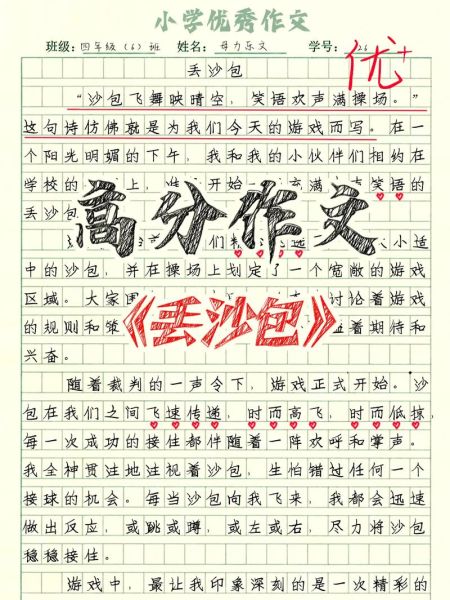 小学优秀作文
班级：四年级（6）班 姓名：
学号：26
优+
丢沙包
“沙包飞舞映晴空，笑语欢声满操场。”
这句诗仿佛就是为我们今天的游戏而写。在一
个阳光明媚的下午，我和我的小伙伴们相约在
学校的 上，准 开始一 充满 笑语的
丢沙包
高分作文
们 选 大小适
中的沙包，并在操场上划定了一个宽敞的游戏
区域。大家围 讨论着游戏
《丢沙包》
的规则和策 着期待和
兴奋。
随着裁判的一声令下，游戏正式开始。沙
包在我们之间飞速传递，时而高飞，时而低掠，
每一次成功的接住都伴随着一阵欢呼和掌声。
我全神贯注地注视着沙包，生怕错过任何一个
接球的机会。每当沙包向我飞来，我都会迅速
做出反应，或跳或蹲，或左或右，尽力将沙包
稳稳接住。
游戏中，最让我印象深刻的是一次精彩的